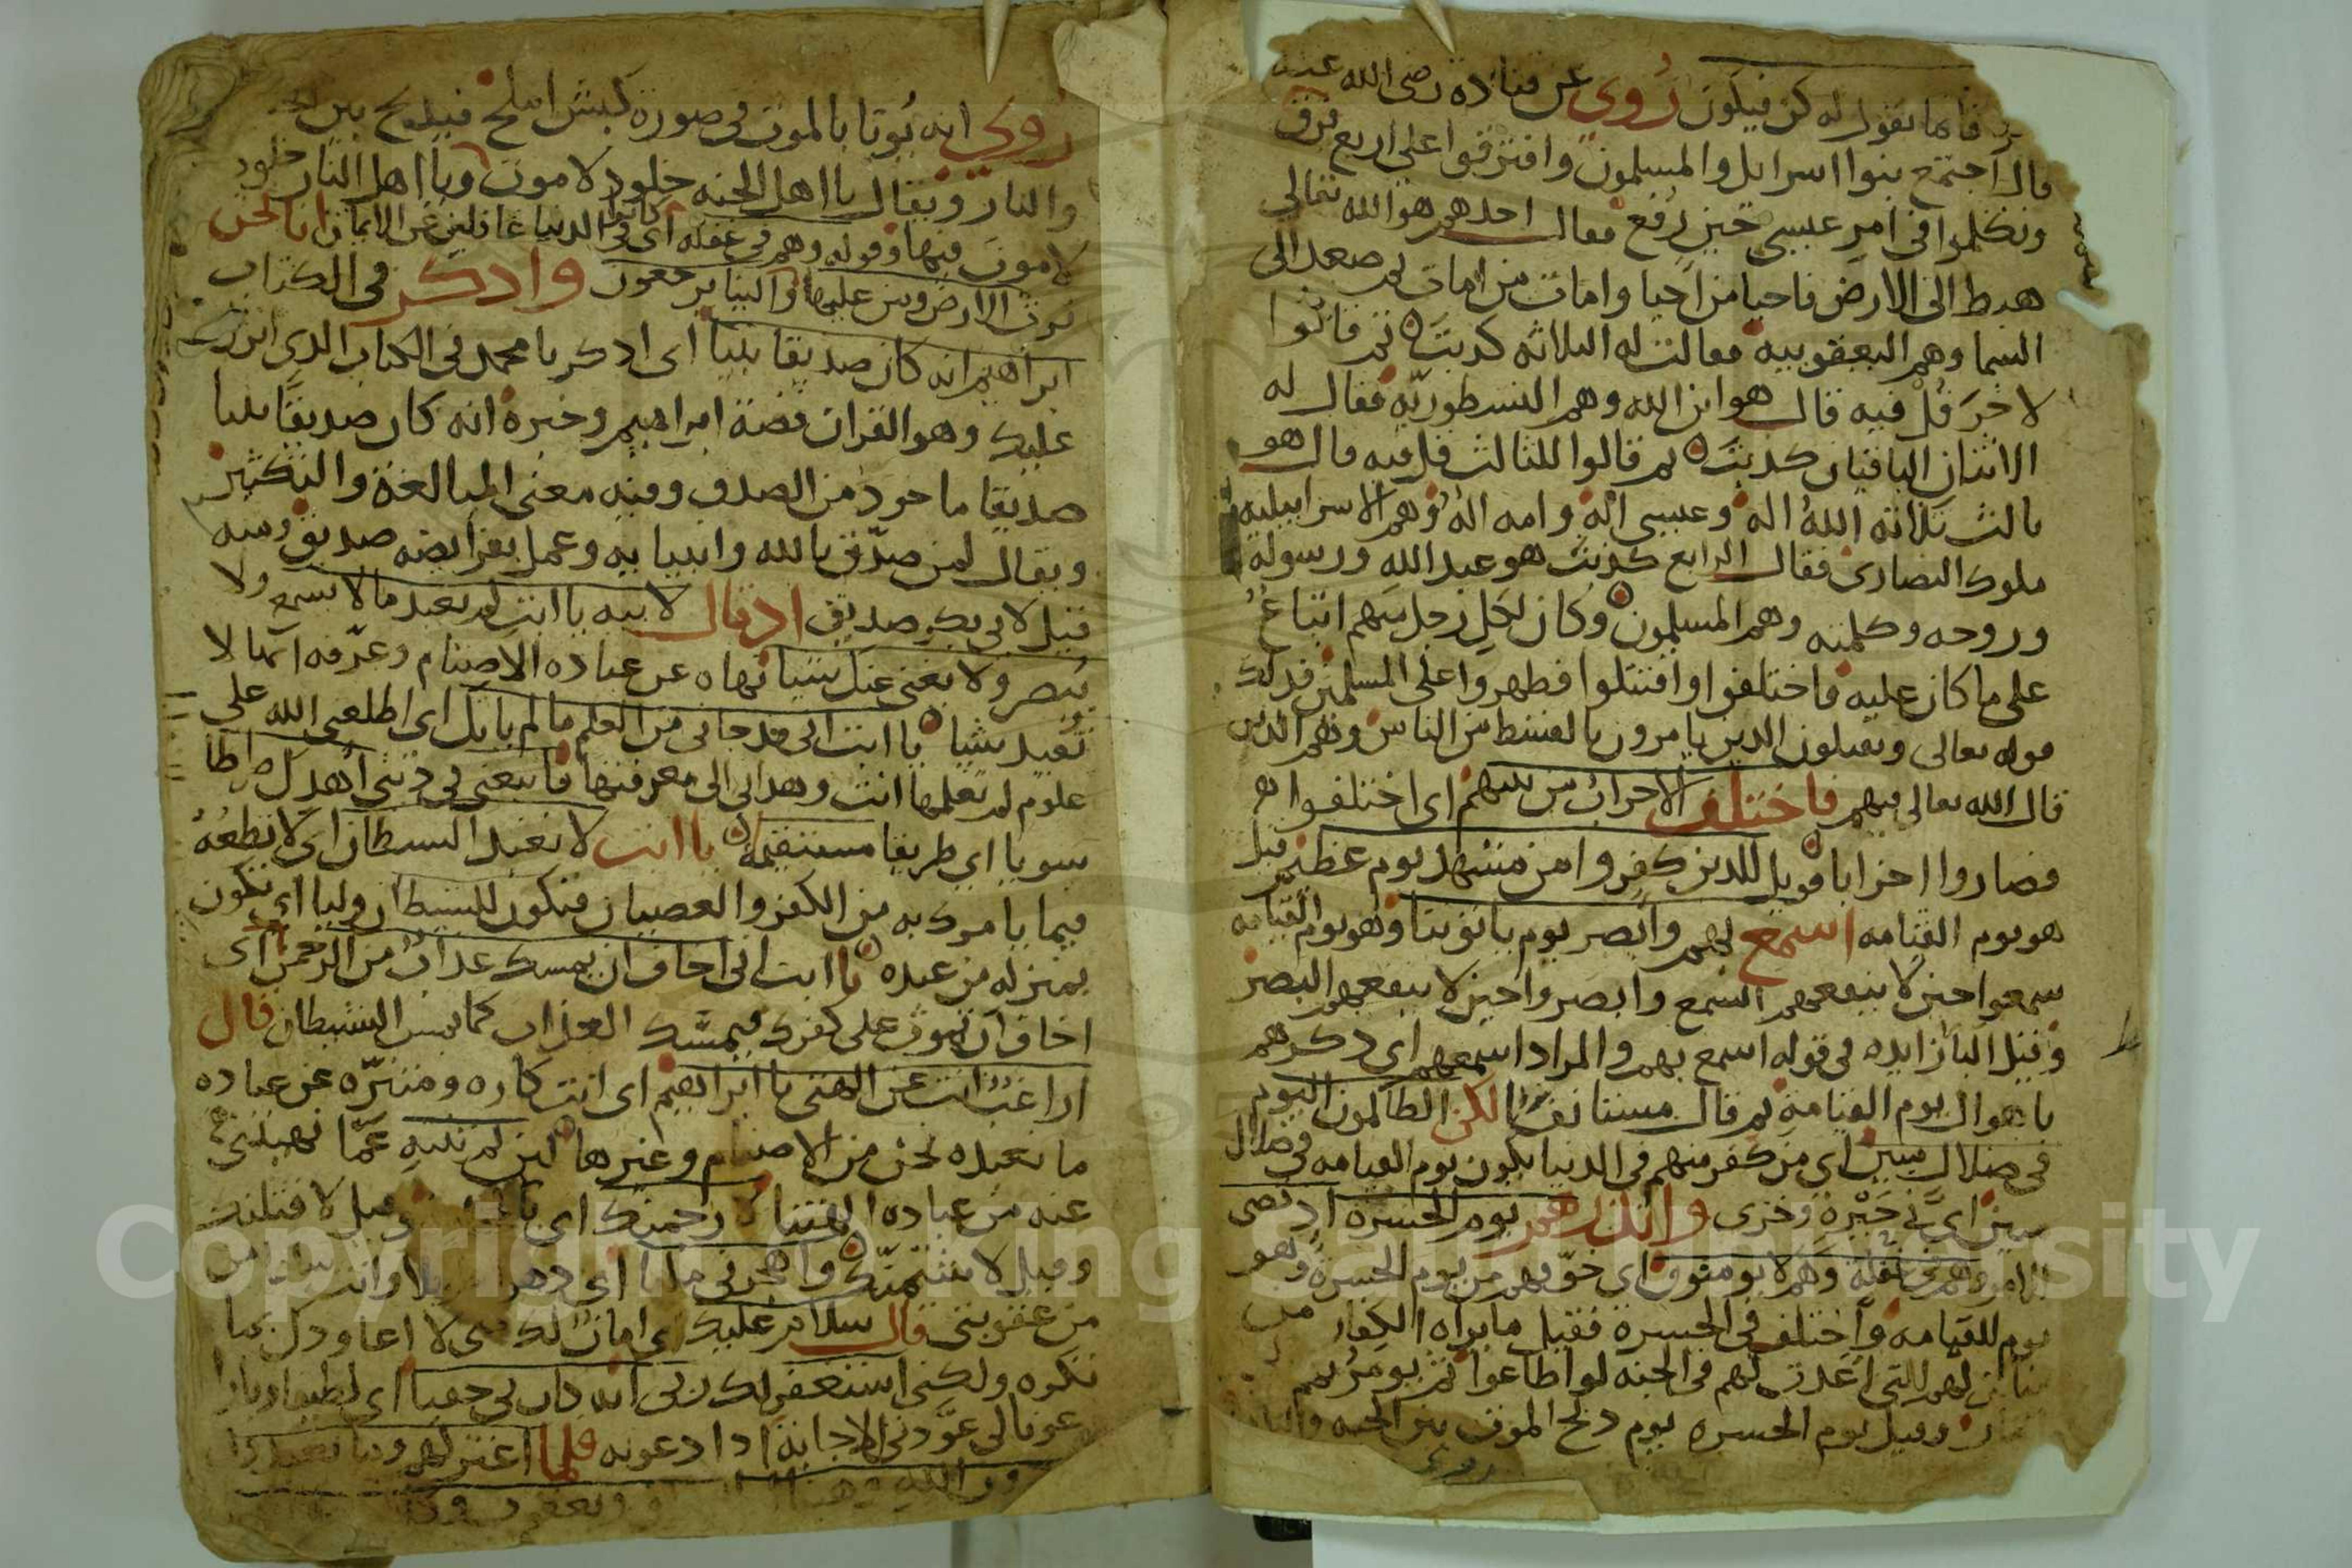 فانما نقول له كن فيكون روي عن قتادة رضي الله عنه
قال اجتمع بنوا اسرايل والمسلمون وافترقوا على اربع فرق
وتكلموا في امر عيسى حين رفع فقال احدهم هو الله تعالى
هبط الى الارض فاحيا من احيا وامات من امات ثم صعد الى
السما وهم اليعقوبيه فقالت له الثلاثه كذبت ثم قالوا
لاخر قل فيه قال هو ابن الله وهم النسطوريه فقال له
الاثنان الباقيان كذبت ثم قالوا للثالث قل فيه قال هو
ثالث ثلاثه الله اله وعيسى اله وامه اله وهم الاسراييليه
ملوك النصارى فقال الرابع كذبت هو عبد الله ورسوله
وروحه وكلمته وهم المسلمون وكان لكل رجل منهم اتباع
على ما كان عليه فاختلفوا واقتتلوا فظهروا على المسلمين فذلك
قوله تعالى ويقتلون الذين يامرون بالقسط من الناس وهم الذين
قال الله تعالى فيهم فاختلف الاحزاب من بينهم اى اختلفوا
فصاروا احزابا فويل للذين كفروا من مشهد يوم عظيم قيل
هو يوم القيامه اسمع بهم وابصر يوم ياتوننا وهو يوم القيامه
سمعوا حين لا ينفعهم السمع وابصروا حين لا ينفعهم البصر
وقيل البا زايده في قوله اسمع بهم والمراد اسمعهم اى ذكرهم
باهوال يوم القيامة ثم قال مستانفا لكن الظالمون اليوم
في ضلال مبين اى من كفر منهم في الدنيا يكون يوم القيامه في ضلال
مبين اى في حيرة وخزى وانذرهم يوم الحسرة اذ قضى
الامر وهم في غفلة وهم لا يومنون اى خوفهم من يوم الحسرة وهو
يوم القيامه واختلف في الحسرة فقيل ما يراه الكفار من
لهم التي اعدت لهم في الجنه لو اطاعوا ثم يومر بهم
وقيل يوم الحسره يوم ذبح الموت بين الجنه والنار
روي
روي انه يوتا بالموت في صورة كبش املح فيذبح بين الجنة
والنار ويقال يا اهل الجنه خلود لا موت ويا اهل النار خلود
لا موت فيها وقوله وهم في غفله اى كانوا في الدنيا غافلين عن الايمان انا نحن
نرث الارض ومن عليها والينا يرجعون واذكر في الكتاب
ابراهيم انه كان صديقا نبيا اى اذكر يا محمد في الكتاب الذى انزلت
عليك وهو القران قصة ابراهيم وخبره انه كان صديقا نبيا
صديقا ماخوذ من الصدق وفيه معنى المبالغة والتكثير
ويقال لمن صدق بالله وانبيايه وعمل بفرايضه صديق ومنه
قيل لابي بكر صديق اذ قال لابيه يا ابت لم تعبد ما لا يسمع ولا
يبصر ولا يغنى عنك شيئا نهاه عن عباده الاصنام وعرفه انها لا
تفيد شيا يا ابت انى قد جاني من العلم ما لم ياتك اى اطلعني الله على
علوم لم تعلمها انت وهداني الى معرفتها فاتبعني في ديني اهدك صراطا
سويا اى طريقا مستقيمة يا ابت لا تعبد الشيطان اى لا تطعه
فيما يامرك به من الكفر والعصيان فتكون للشيطان وليا اى تكون
بمنزله من عبده يا ابت انى اخاف ان يمسك عذاب من الرحمن اى
اخاف ان تموت على كفرك فيمسك العذاب كما يمس الشيطان قال
اراغب انت عن الهتي يا ابراهيم اى انت كاره ومتنزه عن عباده
ما نعبده نحن من الاصنام وغيرها لين لم تنته عما نهيتني
عنه من عباده الهتنا لارجمنك اى وقيل لاقتلنك
وقيل لاشتمنك واهجرني مليا اى دهرا طويلا وانت سالم من
من عقوبتي قال سلام عليك اى امان لك منى لا اعاودك بما
تكره ولكني استغفر لك ربي انه كان بي حفيا اى لطيفا وبارا
عودني الاجابه اذا دعوته فلما اعتزلهم وما يعبدون
من الله وهبنا له